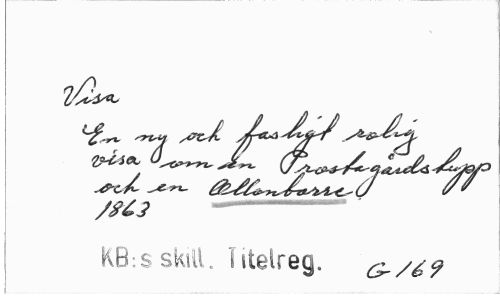 Visa
En ny och fasligt rolig
visa om en Prostagårdstupp
och en Ollonborre
1863
KB:s skill. Titelreg.
G 169